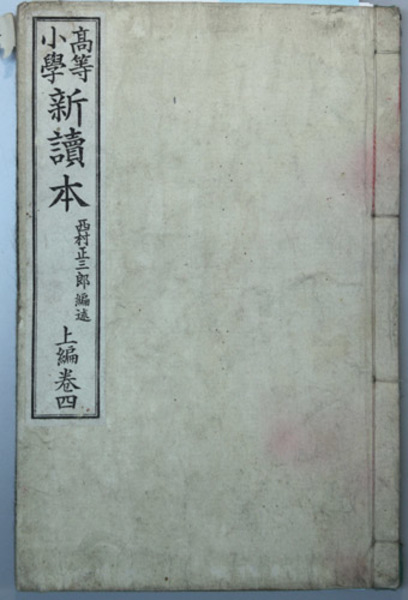 高等
小學
新讀本
西村正三郎 編述
上編卷四